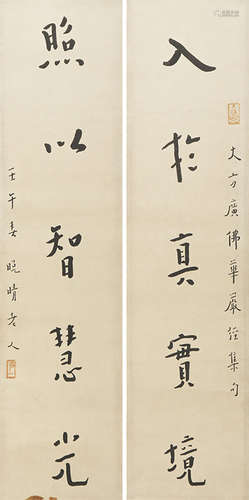 大方廣佛華嚴經集句
入於真實境
照以智慧光
壬午春 晚晴老人